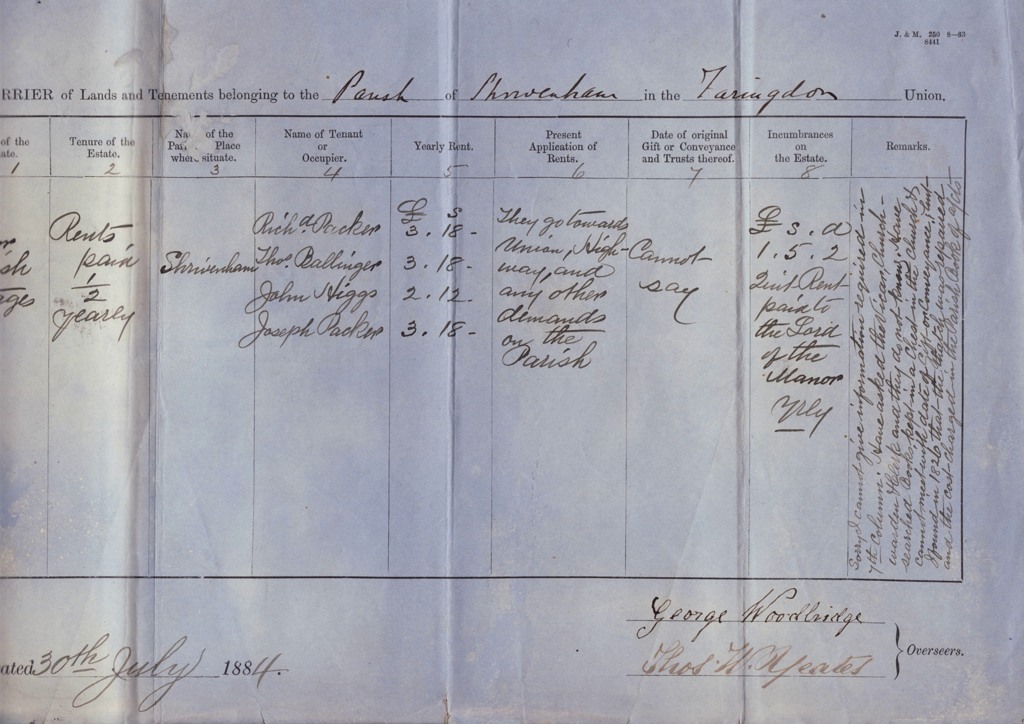 J. & M. 250 8—83
8441
RRIER of Lands and Tenements belonging to the Parish of Shrivenham in the Faringdon Union.
of the
ate.
1
Tenure of the
Estate.
2
Na of the
Par Place
where situate.
3
Name of Tenant
or
Occupier.
4
Yearly Rent.
5
Present
Application of
Rents.
6
Date of original
Gift or Conveyance
and Trusts thereof.
7
Incumbrances
on the Estate.
8
Remarks.
sh
ages
Rents
paid
1/2
yearly
Shrivenham
Richd. Packer
Thos. Ballinger
John Higgs
Joseph Packer
£ s
3 . 18 -
3 . 18 -
2 . 12 .
3 . 18 -
They go towards
Union, High-
way, and
any other
demands
on the
Parish
Cannot
say
£ s . d
1 . 5 . 2
Quit Rent
paid to
the Lord
of the
Manor
Yrly
Sorry I cannot give information required in
7th Column. Have asked the Vicar, Church-
warden & Clerk and they do not know. Have
searched Books, kept in a Chest in the Church &
cannot meet with date of Gift or Conveyance, but
found in 1826 that the Cottages were repaired
and the cost charged in the Parish Book of /
George Woodbridge
Thos. W. Yeates
Overseers.
ated 30th July 1884.